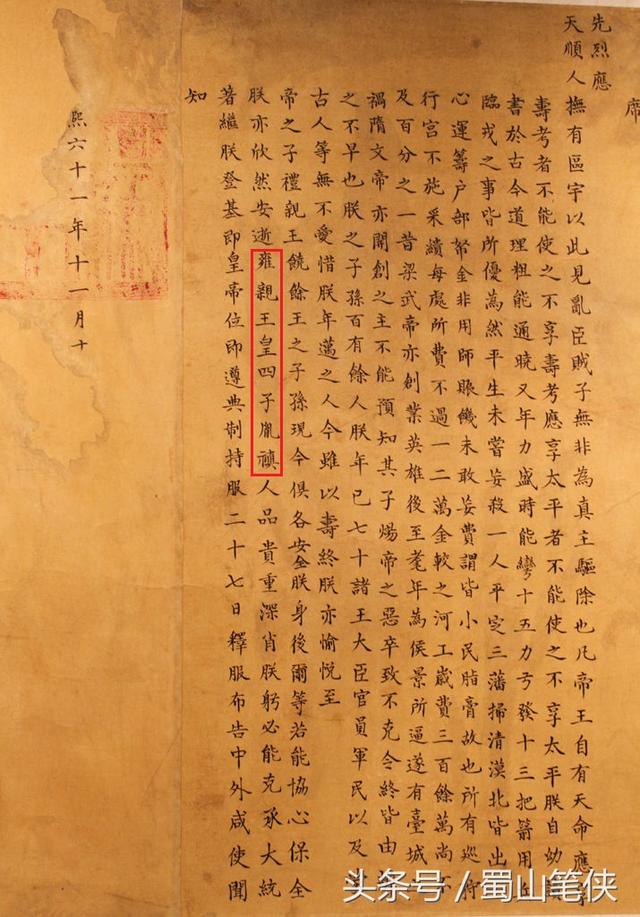 席
先烈應
天順人撫有區宇以此見亂臣賊子無非為真主驅除也凡帝王自有天命應
壽考者不能使之不享壽考應享太平者不能使之不享太平朕自幼讀
書於古今道理粗能通曉又年力盛時能彎十五力弓發十三把箭用兵
臨戎之事皆所優為然平生未嘗妄殺一人平定三藩掃清漠北皆出
心運籌戶部帑金非用師賑饑未敢妄費謂皆小民脂膏故也所有巡狩
行宮不施采繢每處所費不過一二萬金較之河工歲費三百餘萬尚不
及百分之一昔梁武帝亦創業英雄後至耄年為侯景所逼遂有臺城
禍隋文帝亦開創之主不能預知其子煬帝之惡卒致不克令終皆由
之不早也朕之子孫百有餘人朕年已七十諸王大臣官員軍民以及
古人等無不愛惜朕年邁之人今雖以壽終朕亦愉悅至
帝之子禮親王饒餘王之子孫現今俱各安全朕身後爾等若能協心保全
朕亦欣然安逝雍親王皇四子胤禛人品貴重深肖朕躬必能克承大統
著繼朕登基即皇帝位即遵典制持服二十七日釋服布告中外咸使聞
知
熙六十一年十一月十
头条号 / 蜀山笔侠